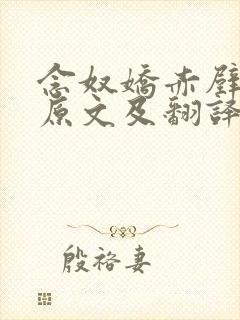 念奴嬌赤壁
原文及翻譯
殷裕妻